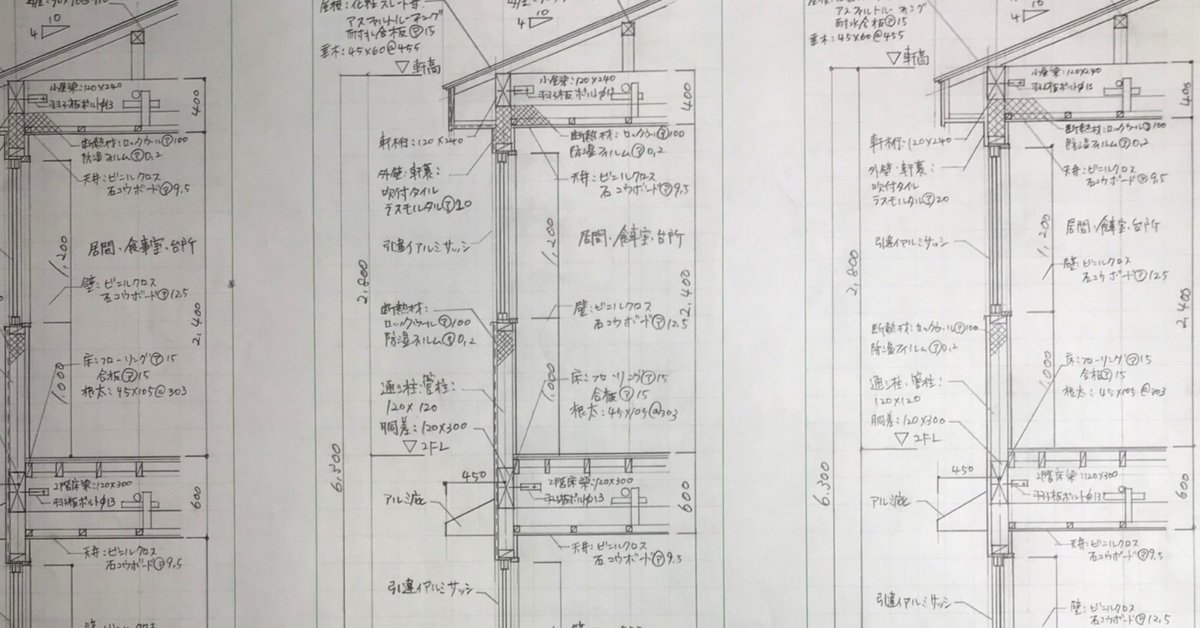 10
4
400
小屋梁:120×240
羽子板ボルトφ13
断熱材:ロックウール㋐100
防湿フィルム㋐0.2
天井:ビニルクロス
石コウボード㋐9.5
1,200
居間・食事室・台所
壁:ビニルクロス
石コウボード㋐12.5
2,400
床:フローリング㋐15
合板㋐15
根太:45×105@303
1,000
2階床梁:120×300
羽子板ボルトφ13
600
天井:ビニルクロス
石コウボード㋐9.5
屋根:化粧スレート㋐
アスファルトルーフィング
耐水合板㋐15
垂木:45×60@455
▽軒高
10
4
小屋梁:120×240
羽子板ボルトφ13
400
軒桁:120×240
断熱材:ロックウール㋐100
防湿フィルム㋐0.2
外壁・軒裏:
吹付タイル
ラスモルタル㋐20
天井:ビニルクロス
石コウボード㋐9.5
引違イアルミサッシ
1,200
居間・食事室・台所
2,800
断熱材:
ロックウール㋐100
防湿フィルム㋐0.2
壁:ビニルクロス
石コウボード㋐12.5
2,400
通シ柱・管柱:
120×120
胴差:120×300
▽2FL
床:フローリング㋐15
合板㋐15
根太:45×105@303
1,000
6,300
450
アルミ庇
2階床梁:120×300
羽子板ボルトφ13
600
天井:ビニルクロス
石コウボード㋐9.5
引違イアルミサッシ
アスファルトルーフィング
耐水合板㋐15
垂木:45×60@455
▽軒高
10
4
小屋梁:120×240
羽子板ボルトφ13
400
軒桁:120×240
断熱材:ロックウール㋐100
防湿フィルム㋐0.2
外壁・軒裏:
吹付タイル
ラスモルタル㋐20
天井:ビニルクロス
石コウボード㋐9.5
引違イアルミサッシ
1,200
居間・食事室・台所
2,800
壁:ビニルクロス
石コウボード㋐12.5
2,400
断熱材:ロックウール㋐100
防湿フィルム㋐0.2
通シ柱・管柱:
120×120
胴差:120×300
▽2FL
床:フローリング㋐15
合板㋐15
根太:45×105@303
1,000
6,300
450
アルミ庇
2階床梁:120×300
羽子板ボルトφ13
600
天井:ビニルクロス
石コウボード㋐9.5
引違イアルミサッシ
壁:ビニルクロス
石コウボード㋐12.5